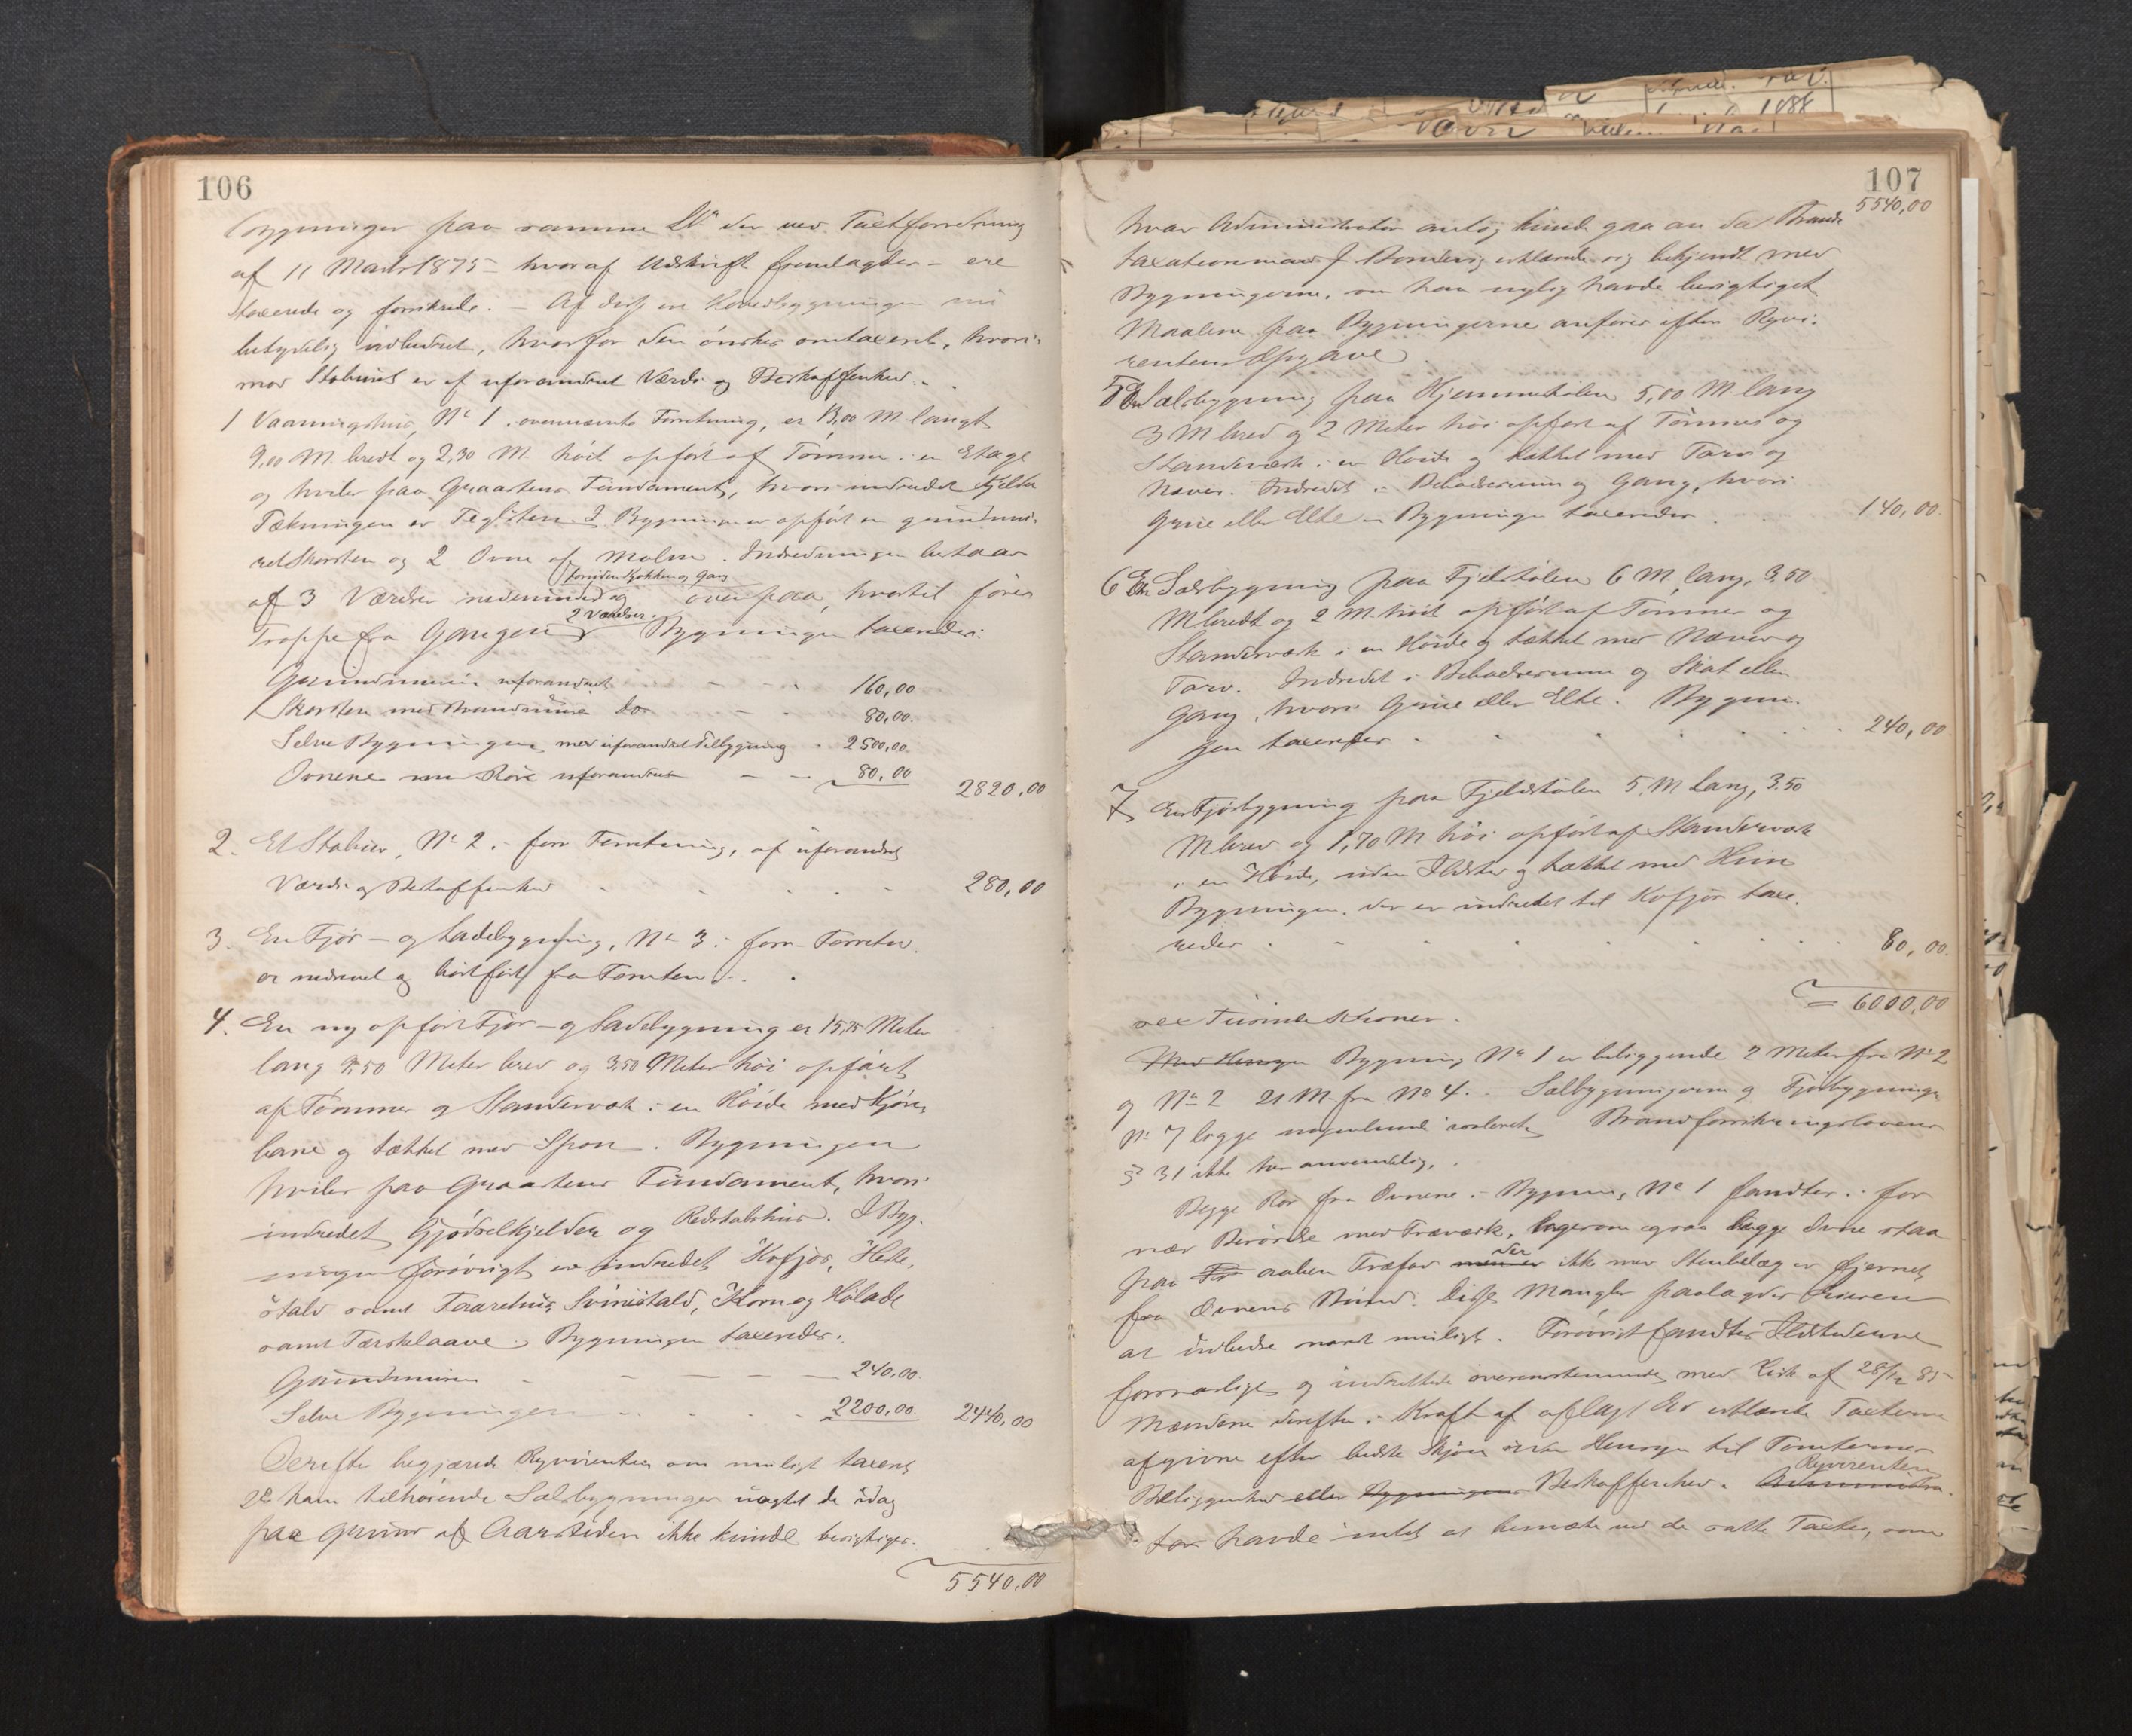 106
Bygninger paa samme Sted der ved Taxtforretning
af 11 Marts 1875 – hvoraf Udskrift fremlagdes – ere
taxerede og forsikrede. – Af disse er Hovedbygningen nu
betydelig udbedret, hvorfor den ønskes omtaxeret, hvori-
mod Stabured er af uforandret Værdi og Beskaffenhed.
1 Vaaningshus, No 1 i ovennævnte Forretning, er 13,00 M. langt
9,00 M. bredt og 2,30 M. höit opfört af Tömmer i en Etage
og hviler paa Graastens Fundament, hvori indredet Kjelder
Tækningen er Teglsten. I Bygningen er opfört en grundmu-
ret Skorsten og 2 Ovne af Malm. Indredningen bestaar
foruden Kjøkken og Gang
af 3 Værelser nedenunder og ovenpaa, hvortil förer
2 Værelser.
Trappe fra Gangen Bygningen taxeredes:
Grundmuren uforandret 160,00
Skorsten med Brandmure do 80,00.
Selve Bygningen med uforandret Tilbygning 2500,00.
Ovnene med Rör uforandret 80,00 2820,00
2. Et Stabur, No 2 i forr. Forretning, af uforandret
Værdi og Beskaffenhed 280,00
3. En Fjös- og Ladebygning, No 3 i forr. Forretn.
er nedrevet og bortfört fra Tomten.
4. En ny opfört Fjös- og Ladebygning er 15,75 Meter
lang 9,50 Meter bred og 3,50 Meter höi opfört
af Tömmer og Standerværk i en Höide med Kjöre-
bane og tækket med Spon. Bygningen
hviler paa Graastens Fundament, hvori
indredet Gjödselkjelder og Redskabshus. I Byg-
ningen forövrigt er indredet Kofjös, Heste-
stald samt Faarehus, Svinestald, Korn og Hölade
samt Tærskelaave. Bygningen taxeredes:
Grundmuren 240,00.
Selve Bygningen 2200,00. 2440,00
Derefter begjærede Rekvirenten om muligt taxeret
2de ham tilhörende Sælsbygninger uagtet de idag
paa Grund af Aarstiden ikke kunde besigtiges.
5540,00
107
5540,00
hvad Administrator antog kunde gaa an da Brand-
taxationsmand J erklærede sig bekjendt med
Bygningerne, som han nylig havde besigtiget
Maalene paa Bygningerne anföres efter Rekvi-
rentens Opgave
5 En Sælsbygning paa Hjemmestölen 5,00 M lang
3 M bred og 2 Meter höi opfört af Tömmer og
Standerværk i en Höide og tækket med Torv og
Næver. Indredet i Beboelsesrum og Gang, hvori
Grue eller Elte – Bygningen taxeredes 140,00.
6 En Sælsbygning paa Fjeldstölen 6 M. lang, 3.50
M bredt og 2 M. höit opfört af Tömmer og
Standerværk i en Höide og tækket med Næver og
Torv. Indredet i Beboelsesrum og Skot eller
Gang, hvori Grue eller Elte. Bygnin-
gen taxeredes 240,00.
7 En Fjösbygning paa Fjeldstölen 5. M lang, 3.50
M bred og 1,70 M höi opfört af Standerværk
i en Höide, uden Ildsted og tækket med Hun
Bygningen, der er indredet til Kofjös taxe-
redes 80,00.
= 6000,00
sex Tusinde Kroner.
Med Hensyn Bygning No 1 er beliggende 2 Meter fra No 2
og No 2 21 M fra No 4. Sælbygningerne og Fjösbygningen
No 7 ligge nogenlunde isoleret Brandforsikringslovens
§ 31 ikke her anvendelig.
Begge Rör fra Ovnene i Bygning No 1 fandtes i for
nær Berörelse med Træværk, ligesom ogsaa begge Ovne staa
der
paa aaben Træfod men er ikke med Stenbelæg er fjernet
fra Ovnens Bund. Disse Mangler paalagdes Eieren
at udbedre snarest muligt. Forövrigt fandtes Ildstederne
forsvarlige og indrettede overensstemmende med Lisk af 28/12 85
Mændene derefter i Kraft af aflagt Ed erklærede Taxterne
afgivne efter bedste Skjön uden Hensyn til Tomternes
Rekvirenten
Beliggenhed eller Bygningens Beskaffenhed. Administra-
tor havde intet at bemærke ved de satte Taxter, som